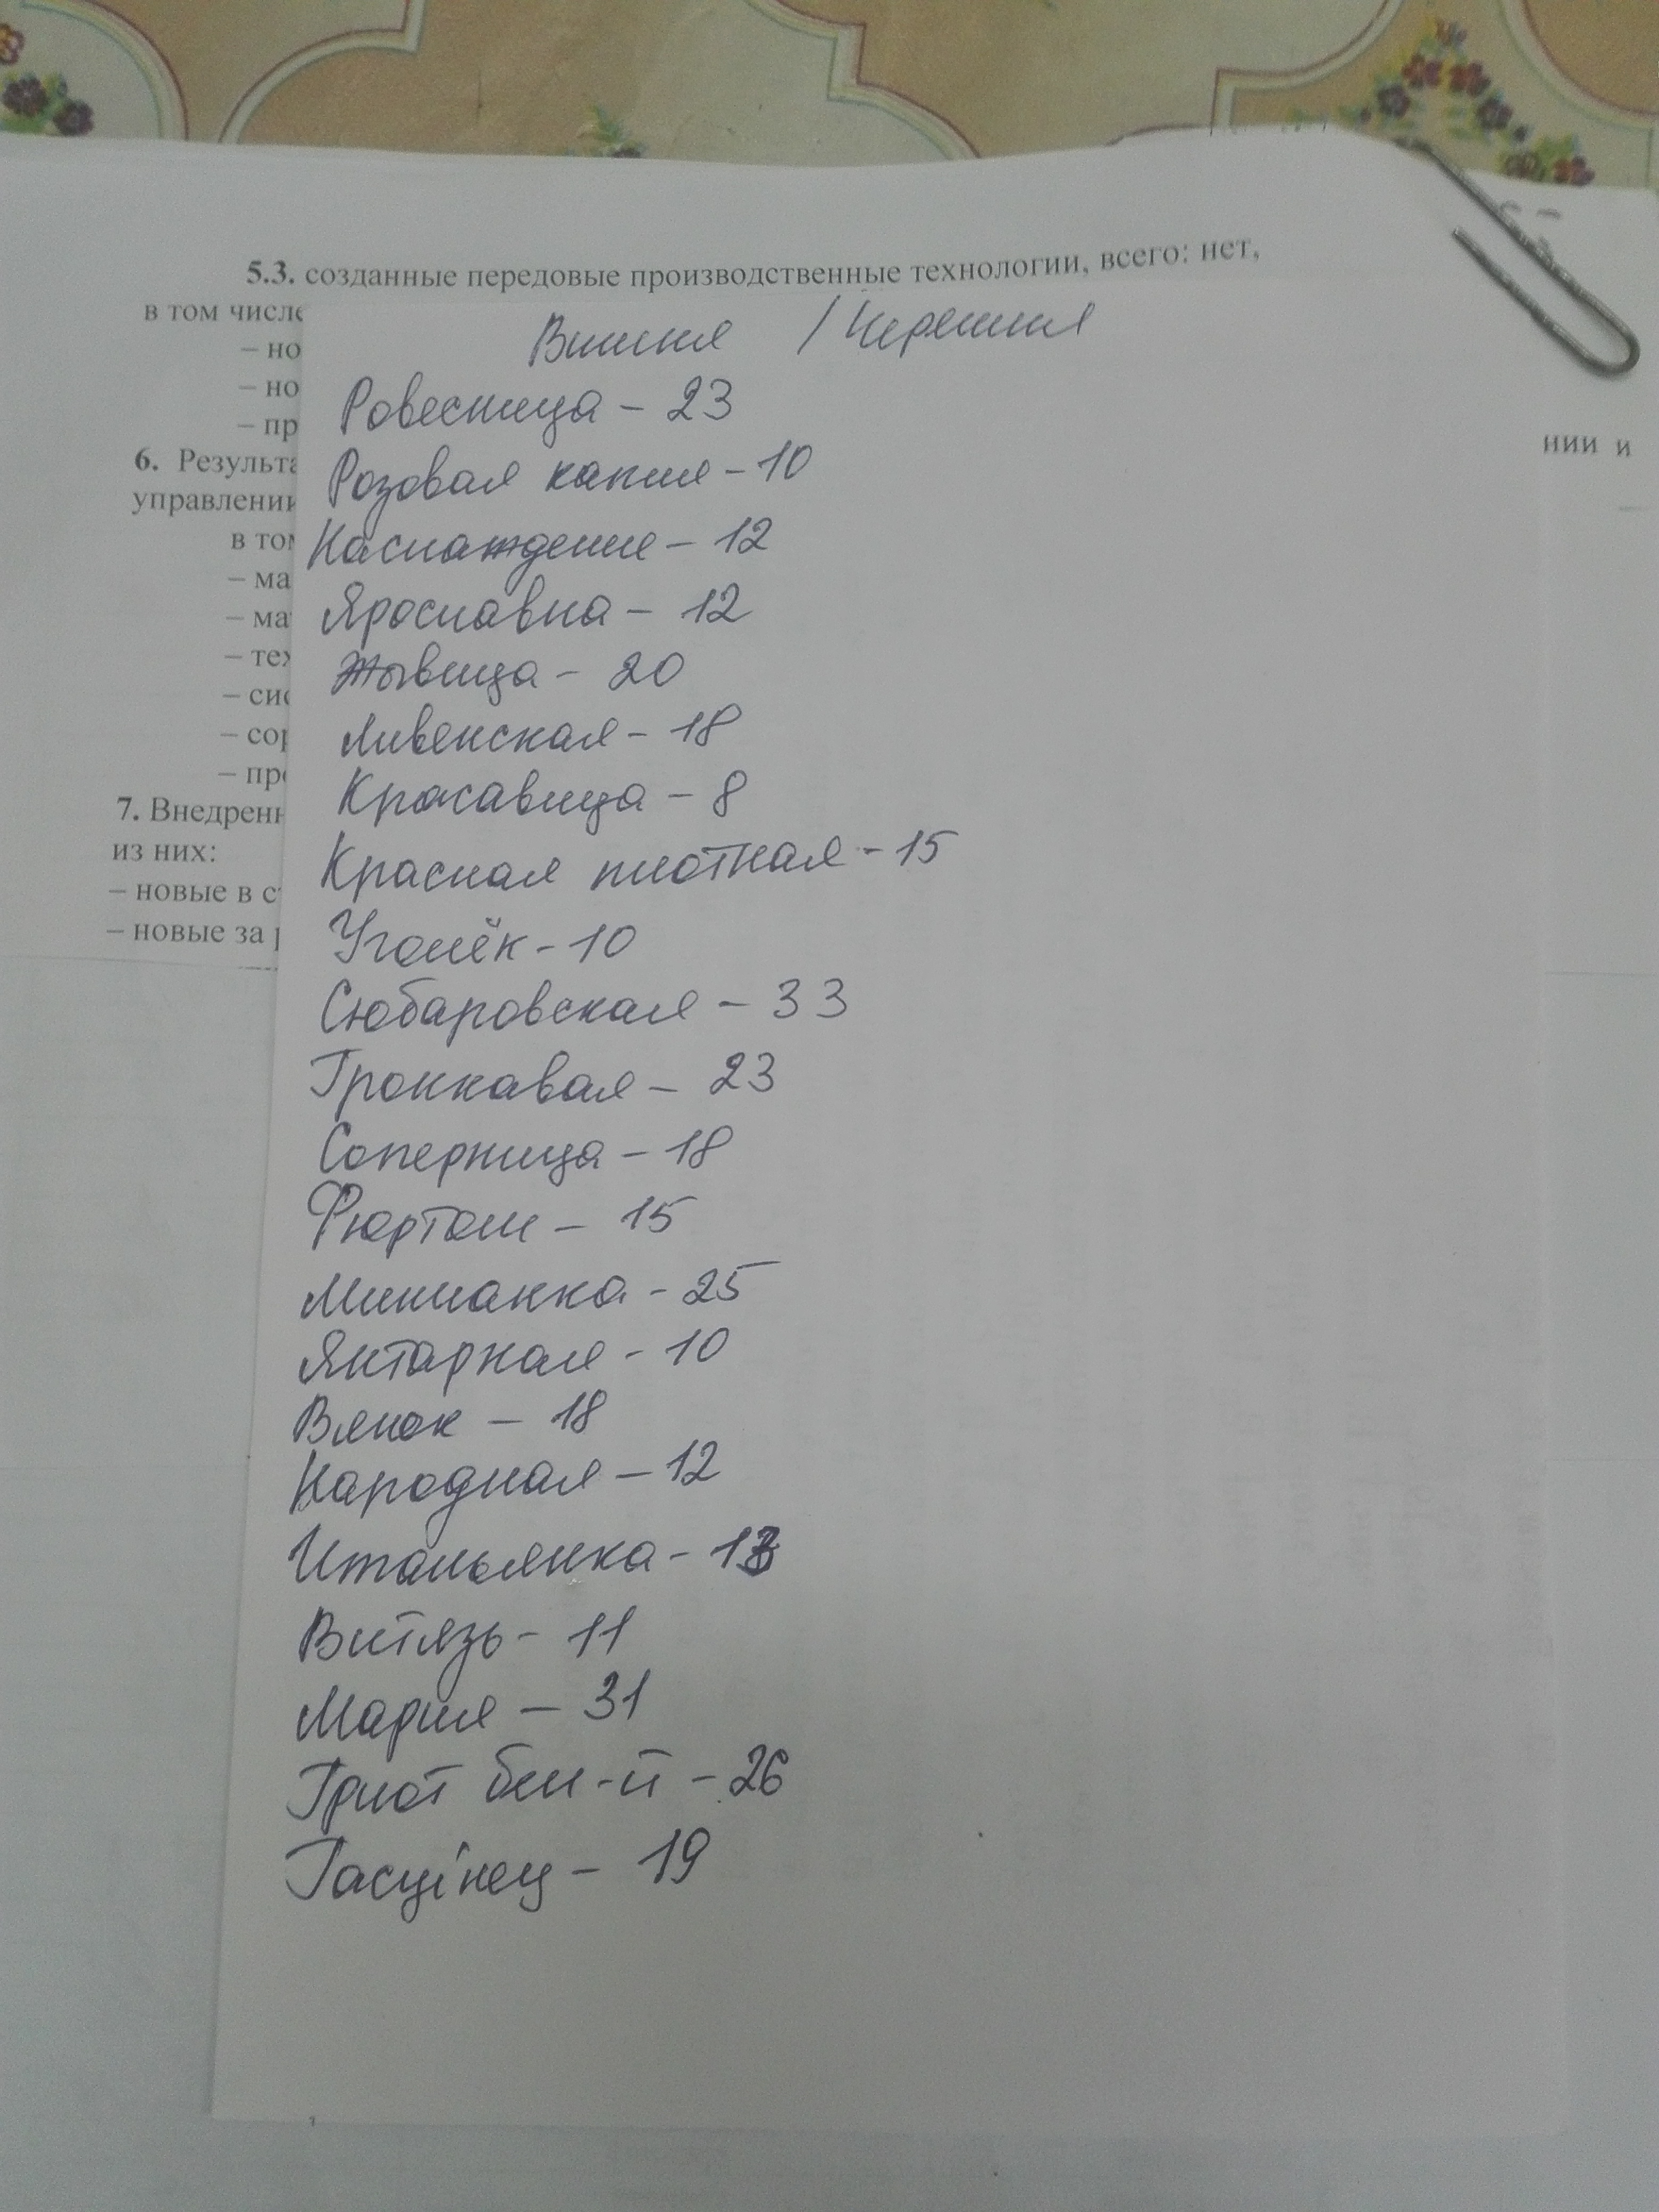 5.3. созданные передовые производственные технологии, всего: нет,
в том числе
Вишня / Черешня
– но
– но
Ровесница – 23
– пр
нии и
6. Результа
Розовая капля – 10
управлении
в том
Наслаждение – 12
– ма
– ма
Ярославна – 12
– тех
Жывица – 20
– сис
– сор
Ливенская – 18
– про
Красавица – 8
7. Внедренн
из них:
Красная плотная – 15
– новые в с
– новые за р
Уголёк – 10
Сюбаровская – 33
Гронкавая – 23
Соперница – 18
Фюртош – 15
Минчанка – 25
Янтарная – 10
Вянок – 18
Народная – 12
Итальянка – 13
Витязь – 11
Мария – 31
Гриот бел-й – 26
Гасцiнец – 19